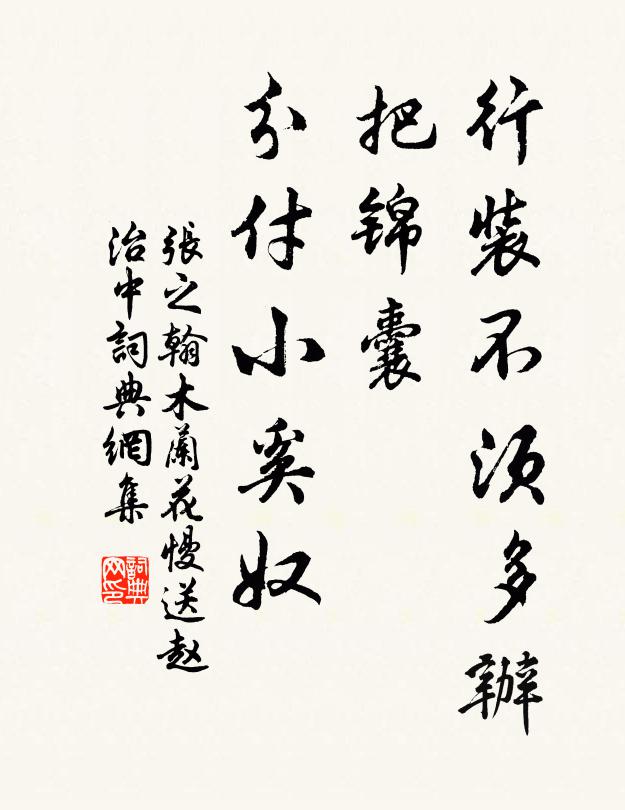 行裝不須多辦
把锦囊
分付小奚奴
張之翰木蘭花慢送赵
治中詞典網集
詞典
网印